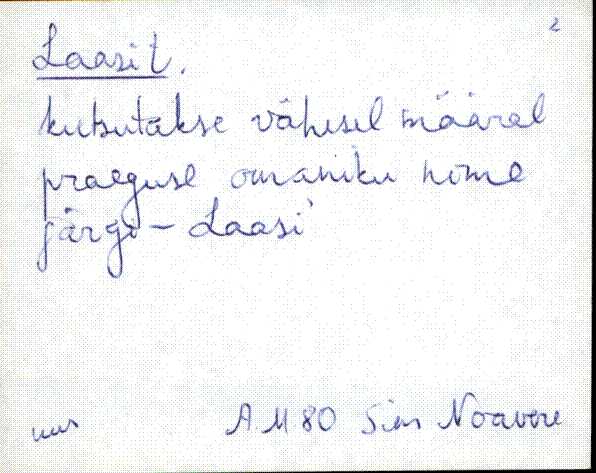 2
Laasi t.
kutsutakse vähesel määral
praeguse omaniku nime
järgi – Laasi
uus AM 80 Sim Noavere